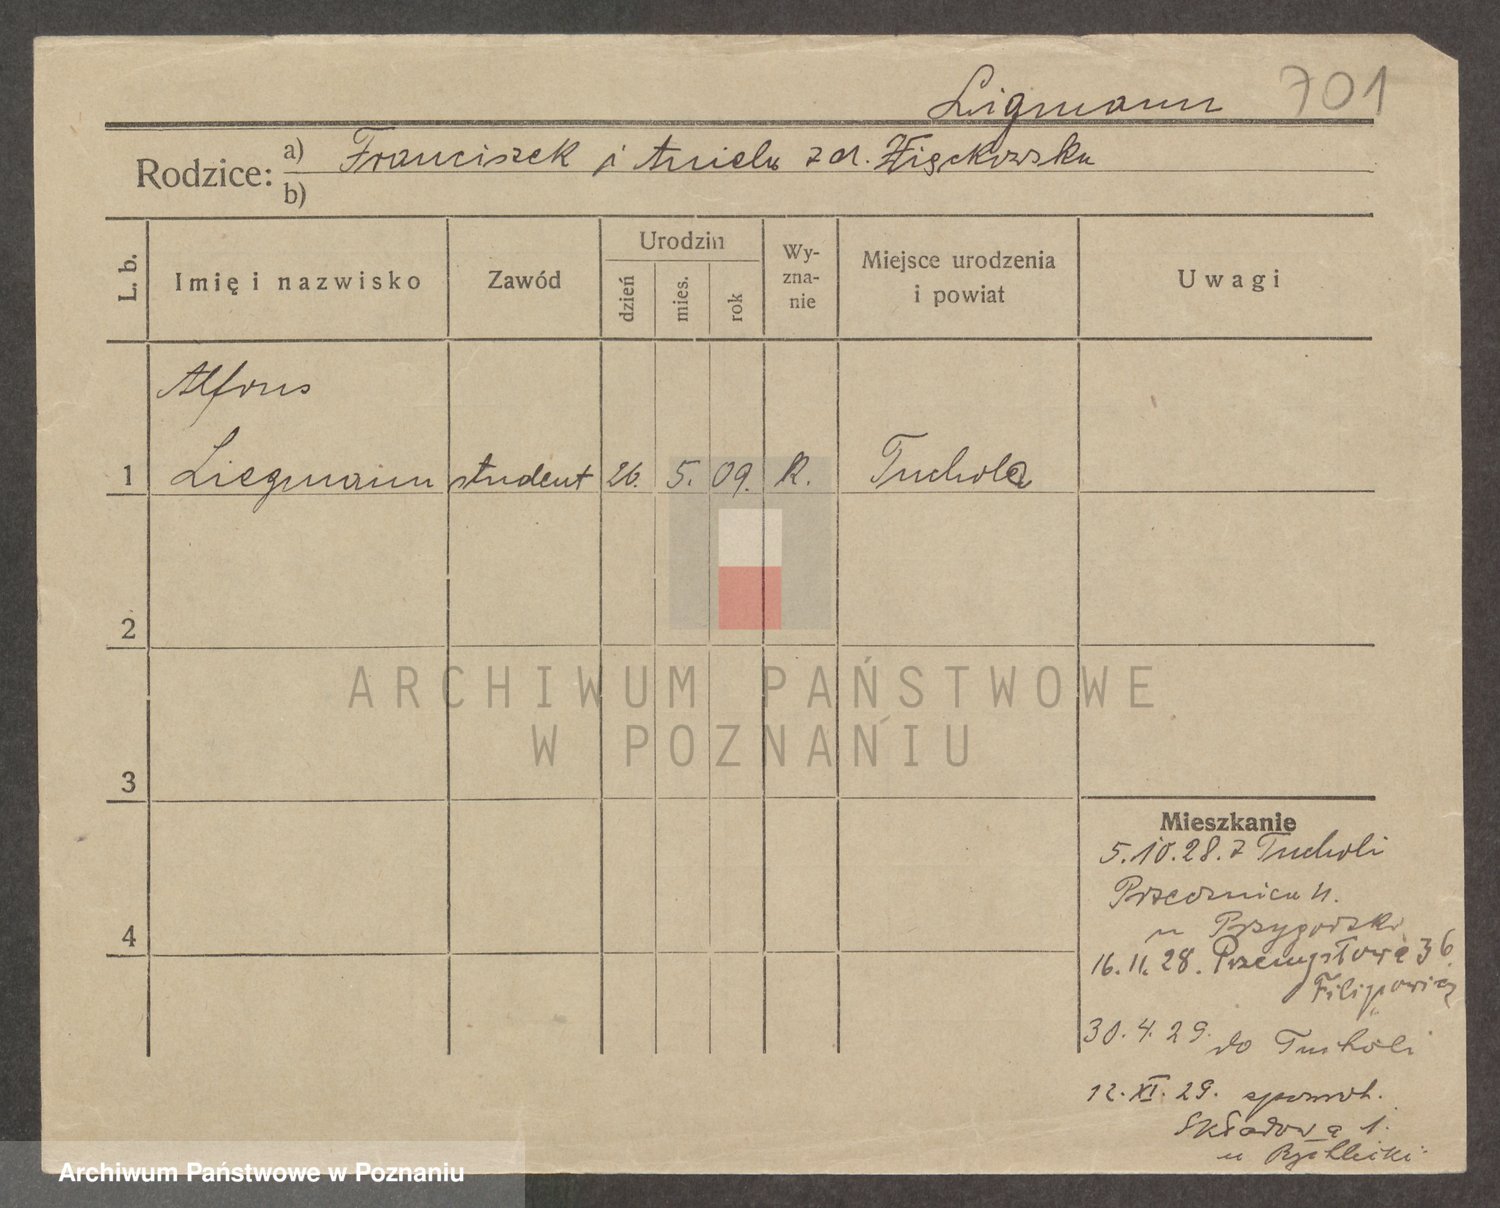 Ligmann 701
Rodzice: a) Franciszek i Aniela zd. Zięckowska
b)
L. b.
Imię i nazwisko
Zawód
Urodzin
dzień
mies.
rok
Wy-
zna-
nie
Miejsce urodzenia
i powiat
Uwagi
Alfons
1 Liegmann student 26. 5. 09. R. Tuchola
2
3
4
Mieszkanie
5.10.28. z Tucholi
Przecznica 11.
u Przygorski
16.11.28. Przemysłowa 36
Filipowicz
30.4.29. do Tucholi
12.XI.29. spowrot.
Składowa 1.
u Rychlicki
ARCHIWUM PAŃSTWOWE
W POZNANIU
Archiwum Państwowe w Poznaniu